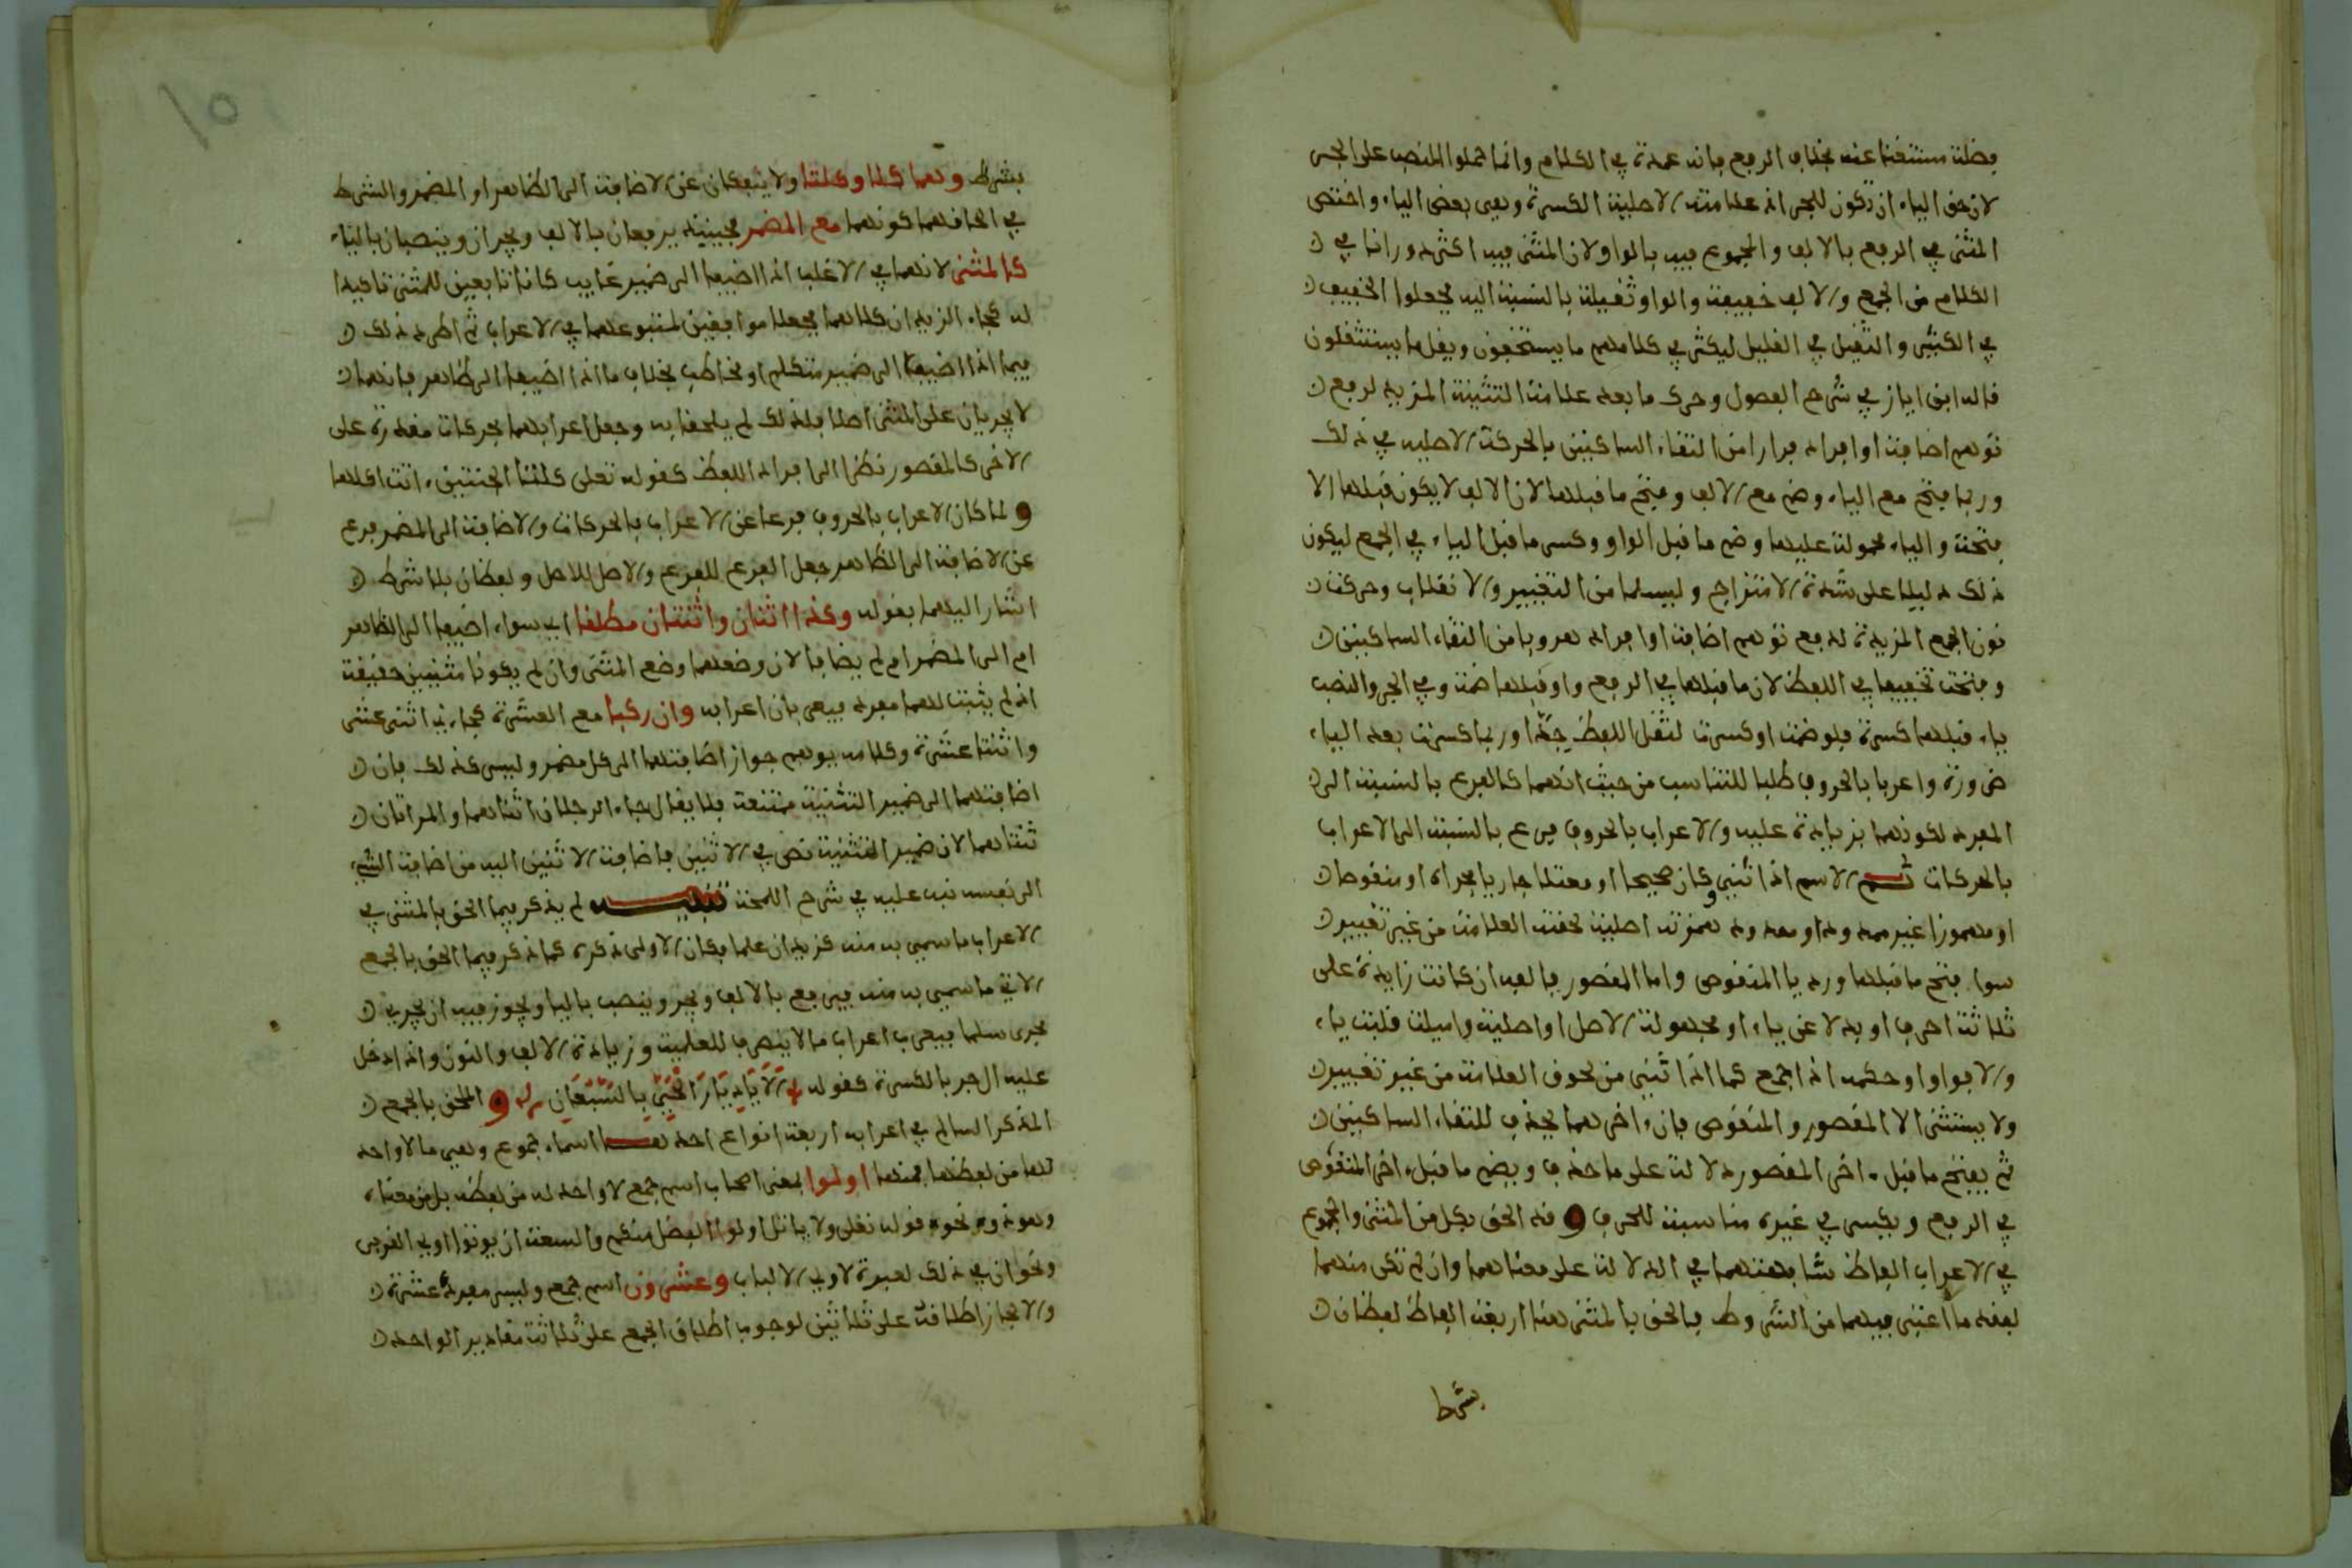 فضلة مستغنى عنه بخلاف الرفع فانه عمدة في الكلام وانما حملوا النصب على الجر
لان حق الياء ان تكون للجر اذ علامته الاصلية الكسرة وهي بعض الياء واختص
المثنى في الرفع بالالف والمجموع فيه بالواو لان المثنى فيه اكثر دورانا في
الكلام من الجمع والالف خفيفة والواو ثقيلة بالنسبة اليه فجعلوا الخفيف
في الكثير والثقيل في القليل ليكثر في كلامهم ما يستخفون ويقل ما يستثقلون
قاله ابن اياز في شرح الفصول وحرك ما بعد علامة التثنية المزيد لرفع
توهم اضافة او افراد فرارا من التقاء الساكنين بالحركة الاصلية في ذلك
وربما فتح مع الياء وضم مع الالف وفتح ما قبلها لان الالف لا يكون قبلها الا
فتحة والياء محمولة عليها وضم ما قبل الواو وكسر ما قبل الياء في الجمع ليكون
ذلك دليلا على شدة الامتزاج وليسلما من التغيير والانقلاب وحركت
نون الجمع المزيدة لدفع توهم اضافة او افراد هروبا من التقاء الساكنين
وفتحت تخفيفا في اللفظ لان ما قبلها في الرفع واو قبلها ضمة وفي الجر والنصب
ياء قبلها كسرة فلو ضمت او كسرت لثقل اللفظ جدا وربما كسرت بعد الياء
ضرورة واعربا بالحروف طلبا للتناسب من حيث انهما كالفرع بالنسبة الى
المفرد لكونهما بزيادة عليه والاعراب بالحروف فرع بالنسبة الى الاعراب
بالحركات ثم الاسم اذا ثني وكان صحيحا او معتلا جاريا مجراه او منقوصا
او مهموزا غير ممدود او ممدود همزته اصلية لحقته العلامة من غير تغيير
سوا فتح ما قبلها ورد يا المنقوص واما المقصور فالفه ان كانت زايدة على
ثلاثة احرف او بدلا عن ياء او مجهولة الاصل او اصلية واميلت قلبت ياء
والا فواوا وحكمه اذا جمع كما اذا ثني من لحوق العلامة من غير تغيير
ولا يستثنى الا المقصور والمنقوص فان اخرهما يحذف للتقاء الساكنين
ثم يفتح ما قبل اخر المقصور دلالة على ما حذف ويضم ما قبل اخر المنقوص
في الرفع ويكسر في غيره مناسبة للحرف و قد الحق بكل من المثنى والمجموع
في الاعراب الفاظ شابهتهما في الدلالة على معناهما وان لم تكن منهما
لفقد ما اعتبر فيهما من الشروط فالحق بالمثنى هنا اربعة الفاظ لفظان
بشرط
بشرط وهما كلا وكلتا ولا ينفكان عن الاضافة الى الظاهر او المضمر والشرط
في الحاقهما كونهما مع المضمر فحينيذ يرفعان بالالف ويجران وينصبان بالياء
كالمثنى لانهما في الاغلب اذا اضيفا الى ضمير غايب كانا تابعين للمثنى تاكيدا
له كجاء الزيدان كلاهما فجعلا موافقين لمتبوعهما في الاعراب ثم اطرد ذلك
فيما اذا اضيفا الى ضمير متكلم او مخاطب بخلاف ما اذا اضيفا الى ظاهر فانهما
لا يجريان على المثنى اصلا فلذلك لم يلحقا به وجعل اعرابهما بحركات مقدرة على
الاخر كالمقصور نظرا الى افراد اللفظ كقوله تعلى كلتا الجنتين اتت اكلها
و لما كان الاعراب بالحروف فرعا عن الاعراب بالحركات والاضافة الى المضمر فرع
عن الاضافة الى الظاهر جعل الفرع للفرع والاصل للاصل ولفظان بلا شرط
اشار اليهما بقوله وكذا اثنان واثنتان مطلقا اي سواء اضيفا الى الظاهر
ام الى المضمر ام لم يضافا لان وضعهما وضع المثنى وان لم يكونا مثنيين حقيقة
اذ لم يثبت لهما مفرد فيعربان اعرابه وان ركبا مع العشرة كجاءني اثنى عشر
واثنتا عشرة وكلامه يوهم جواز اضافتهما الى كل مضمر وليس كذلك فان
اضافتهما الى ضمير التثنية ممتنعة فلا يقال جاء الرجلان اثناهما والمراتان
ثنتاهما لان ضمير التثنية نص في الاثنين فاضافة الاثنين اليه من اضافة الشيء
الى نفسه نبه عليه في شرح اللمحة تنبيه لم يذكر فيما الحق بالمثنى في
الاعراب ما سمي به منه كزيدان علما وكان الاولى ذكره كما ذكر فيما الحق بالجمع
الاتي ما سمي به منه فيرفع بالالف ويجر وينصب باليا ويجوز فيه ان يجري
مجرى سلمان فيعرب اعراب ما لا ينصرف للعلمية وزيادة الالف والنون واذا دخل
عليه ال جر بالكسرة كقوله الا يا ديار الحي بالسبعان و الملحق بالجمع
المذكر السالم في اعرابه اربعة انواع احدها اسماء جموع وهي ما لا واحد
لها من لفظها فمنها اولوا بمعنى اصحاب اسم جمع لا واحد له من لفظه بل من معناه
وهو ذو نحو قوله تعلى ولا ياتل اولوا الفضل منكم والسعة ان يوتوا اولي القربى
ونحو ان في ذلك لعبرة لاولي الالباب وعشرون اسم جمع وليس مفرده عشرة
والا لجاز اطلاقه على ثلاثين لوجوب اطلاق الجمع على ثلاثة مقادير الواحد